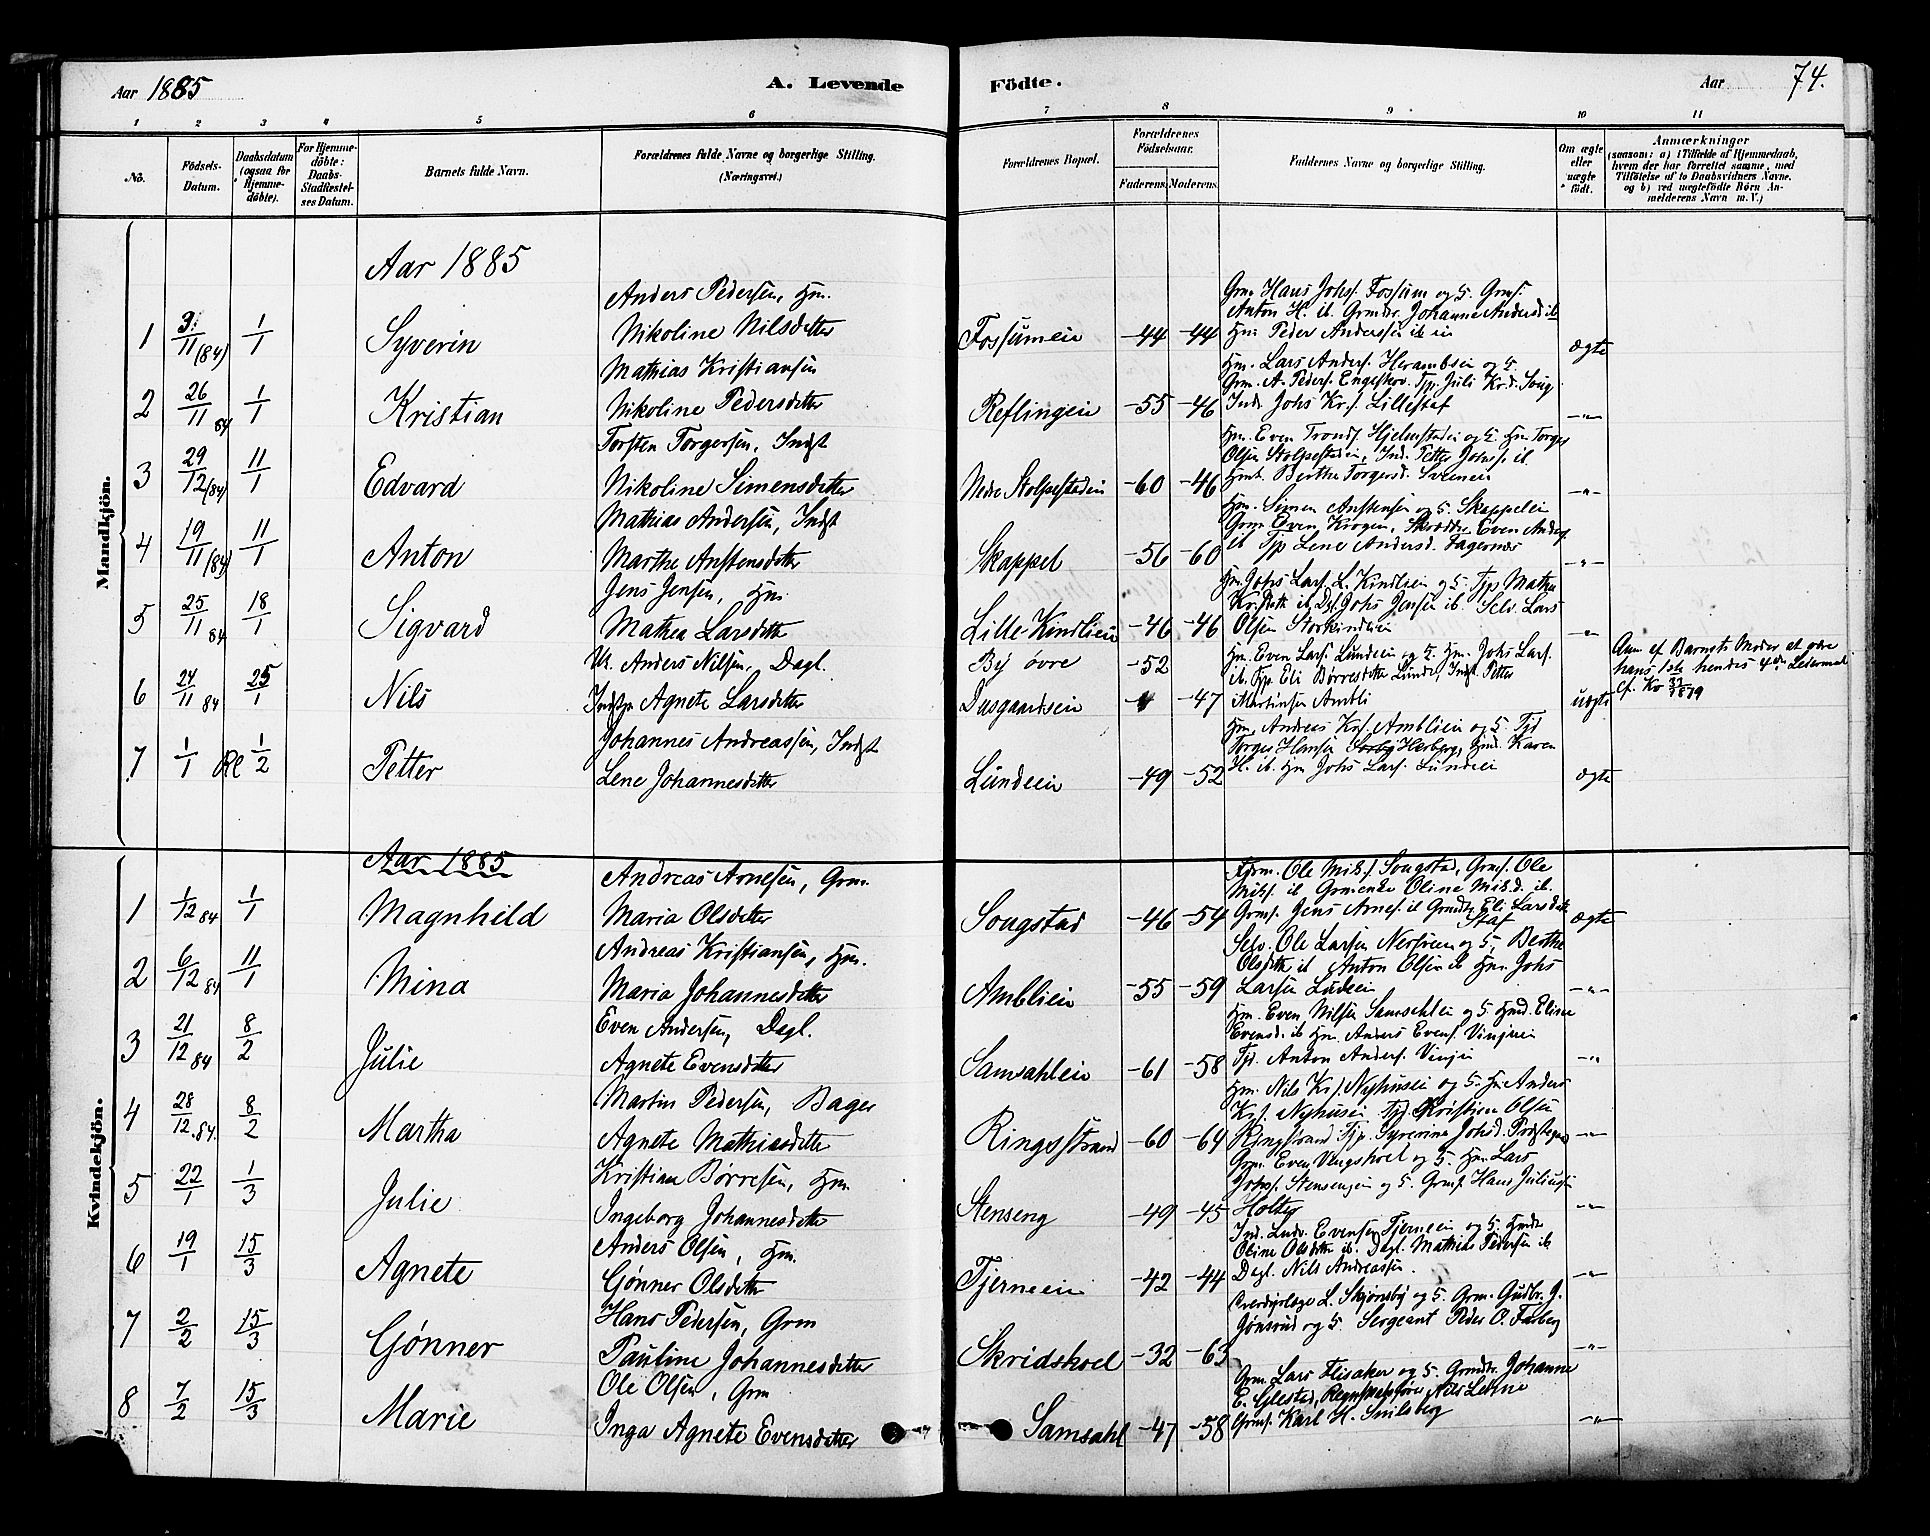 Aar 1885
A. Levende
Födte.
Aar
74.
1 2 3 4 5 6 7 8 9 10 11
No.
Födsels-Datum.
Daabsdatum (ogsaa for Hjemme-döbte).
For Hjemme-döbte: Daabs-Stadfæstel-ses Datum.
Barnets fulde Navn.
Forældrenes fulde Navne og borgerlige Stilling. (Næringsvei.)
Forældrenes Bopæl.
Forældrenes Födselsaar.
Faderens. Moderens.
Faddernes Navne og borgerlige Stilling.
Om ægte eller uægte født.
Anmærkninger
(saasom: a) i Tilfælde af Hjemmedaab, hvem der har forrettet samme, med Tilföielse af to Daabsvidners Navne. og b) ved uægtefödte Börn An-melderens Navn m. V.)
Mandkjön.
Aar 1885
1 3/11 (84) 1/1 Syverin
Anders Pedersen, Hm.
Nikoline Nilsdetter
Fossumeie -44 -44
Grm Hans Johs. Fossum og H. Grmf.
Anton H. ib. Grmdtr. Johanne Andersd ib
Hm. Peder Anderssen ib eie
ægte
2 26/11 84 1/1 Kristian
Mathias Kristiansen
Nikoline Pedersdetter
Reflingeie -55 -46
Hm. Lars Anders. Herambseie og H.
Grm. A. Peders. Engeskov. Tjp. Juli Kr.d. Soug
Inds. Johs Kr.s. Lillestaf
-"-
3 29/12 (84) 11/1 Edvard
Torsten Torgersen, Indst
Nikoline Simensdetter
Nedre Stolpestadeie -60 -46
Hm. Even Tronds. Hjelmstadeie og H. Hm Torges
Olsen Stolpestadeie, Ind. Petter Johns. ib.
Berthe Torgersd. Sveneie
-"-
4 19/11 (84) 11/1 Anton
Mathias Andersen, Indst
Marthe Anstensdetter
Skappel -56 -60
Hm. Simen Anstensen og H. Skappeleie
Grm Even Krogen, Skrædder Even Anders
ib Tjp Lene Andersd. Fagernæs
-"-
5 25/11 84 18/1 Sigvard
Jens Jensen, Hm
Mathea Larsdetter
Lille Kindlieie -46 -46
Hm. Johs Lars. L. Kindlieie og H. Tjp Mathea
ib, Dgl. Johs Jensen ib. Selv. Lars
Olsen Storkindlieie
-"-
6 24/11 84 25/1 Nils
Uk. Anders Nilsen, Dagl.
Indstp Agnete Larsdetter
By øvre -52
Dusgaardseie -47
Hm. Even Lars. Lundeie og H. Hm. Johs Lars.
ib. Tjp. Eli Børresdetter Lunde, Indst. Petter
Martinsen Ambli
uægte
Anm af Barnets Moder at være
hans 1ste hendes 4de Leiermaal
7 1/1 1/2 Petter
Johannes Andreassen, Indst
Lene Johannesdetter
Lundeie -49 -52
Hm. Andreas Kr.s. Amblieie og H. Tjd
Torger Hansen Herberg, Karen
H. ib. Hm Johs Lars. Lundeie
ægte
Kvindekjön.
Aar 1885
1 1/12 84 1/1 Magnhild
Andreas Arnesen, Grm.
Maria Olsdetter
Sougstad -46 -54
Ole Mik.s. Sougstad, Grmf. Ole
Miks. ib Grmenke Oline Mik.d. ib.
Grmf. Jens Arnes. ib Grmdtr Eli Larsdetter
Staf
ægte
2 6/12 84 11/1 Mina
Andreas Kristiansen, Hm.
Maria Johannesdetter
Amblieie -55 -59
Selv. Ole Larsen Nersveen og H. Berthe
Olsdetter ib. Anton Olsen ib Hm. Johs
Larsen Lundeie
-"-
3 21/12 84 8/2 Julie
Even Andersen, Dagl.
Agnete Evensdetter
Samsahleie -61 -58
Hm. Even Nilsen Samsahleie og H. Hmd. Eline
Evensd. ib Hm. Anders Evens. Vinjeeie
Tjd. Anton Anders. Vinjei
-"-
4 28/12.84. 8/2 Martha
Martin Pedersen, Bager
Agnete Mathiasdetter
Ringsstrand -60 -64
Hm. Nils Kr.s. Nyhuseie og H. Hm Anders
Kr.s. Nyhusei Tjd. Kristian Olsen
Ringstrand Tjp. Syverine Johs.d. Prestegaard
-"-
5 22/1 1/3 Julie
Kristian Børresen, Hm
Ingeborg Johannesdetter
Stenseng -49 -45
Grm. Even Vengshoel og H. Hm. Lars
Johs. Stensengeie og H. Grmf. Hans Juliusen
Holter
-"-
6 19/1 15/3 Agnete
Anders Olsen, Hm.
Gønner Olsdetter
Tjerneeie -42 -44
Ind. Ludv. Evensen Tjerneeie og H.
Oline Olsdetter ib. Dagl. Mathias Pedersen ib
Dagl. Nils Andreassen.
-"-
7 2/2 15/3 Gønner
Hans Pedersen, Grm
Pauline Johannesdetter
Skridshoel -32 -63
L. Skjønsby og H. Grm. Gudbr. G.
Gønsrud og H. Sergeant Peder O. Farberg
-"-
8 7/2 15/3 Marie
Ole Olsen, Grm
Inga Agnete Evensdetter
Samsahl -47 -58
Grm. Lars Flisaker og H. Grmdtr. Johanne
E. Gilestad, Nils Lehne
Grmf. Karl H. Snilsberg
-"-